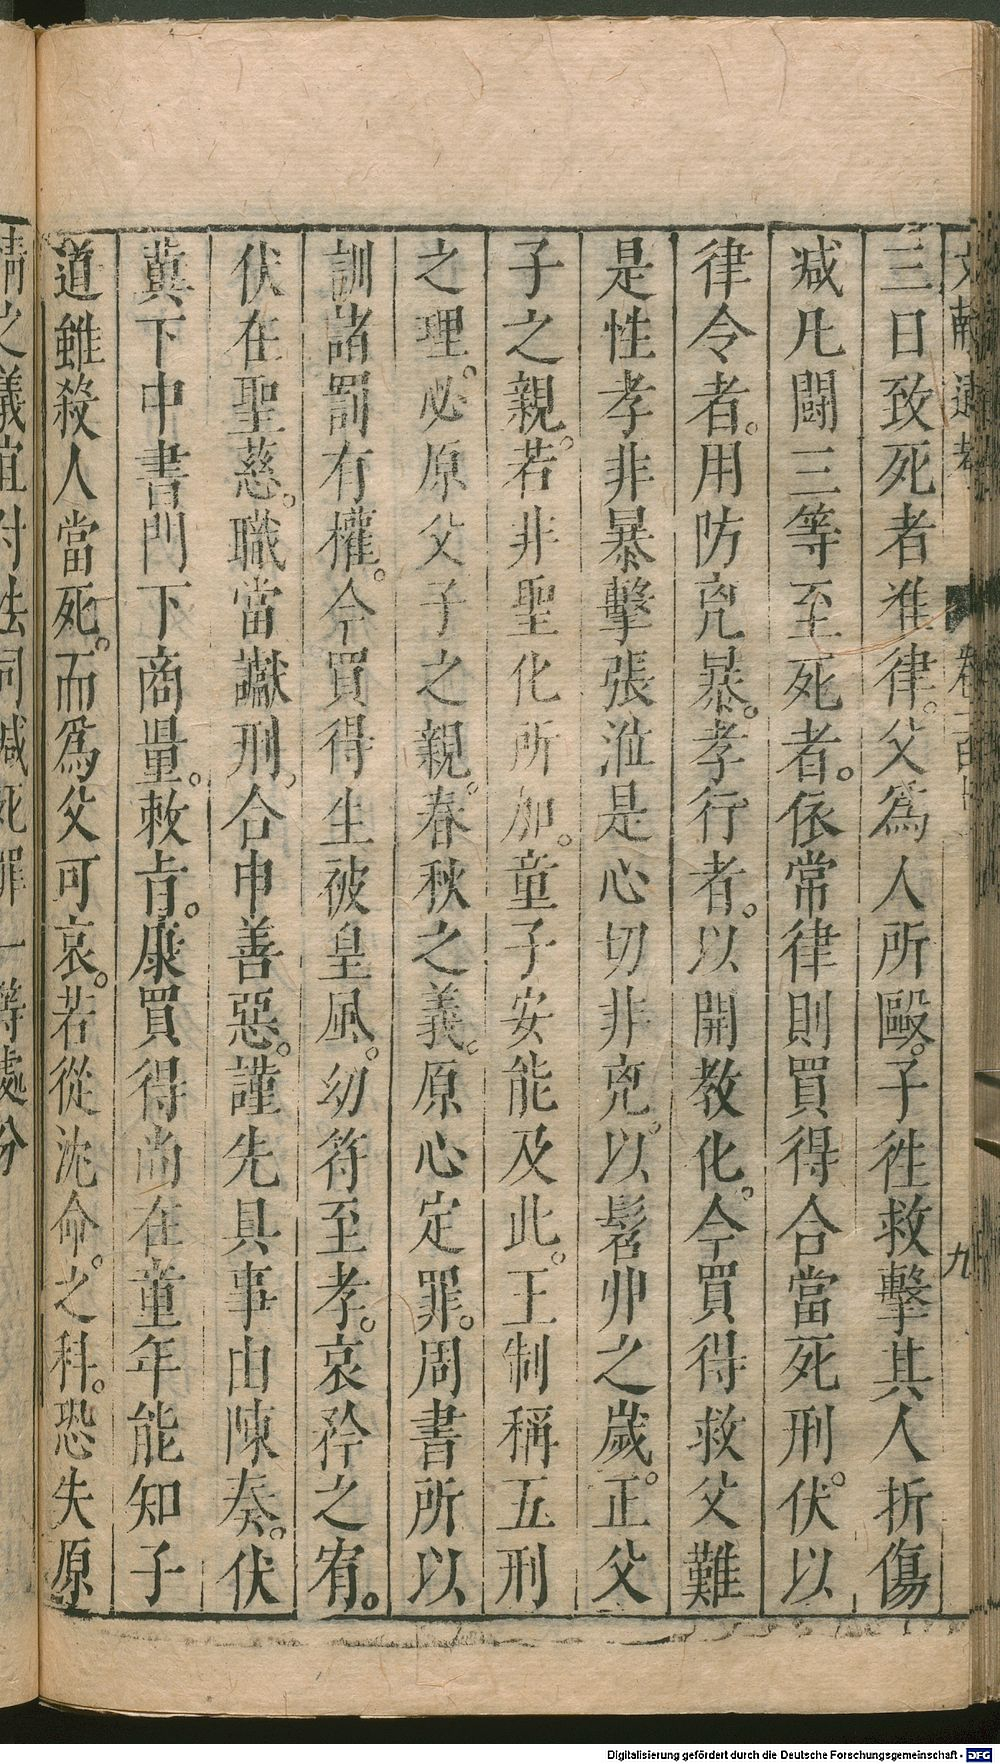 三日致死者准律。父爲人所毆。子徃救擊其人折傷
减凡鬪三等至死者。依常律則買得合當死刑。伏以
律令者。用防兇暴。孝行者。以開教化。今買得救父難
是性孝非暴擊張涖是心切非兇。以髫丱之歲。正父
子之親。若非聖化所加。童子安能及此。王制稱五刑
之理。必原父子之親。春秋之義。原心定罪。周書所以
訓諸罰有權。今買得生被皇風。幼符至孝。哀矜之宥。
伏在聖慈。職當讞刑。合申善惡。謹先具事由陳奏。伏
冀下中書門下商量。敕旨。康買得尚在童年能知子
道雖殺人當死。而爲父可哀。若從沈命。之科。恐失原
情之義宜付法司减死罪一等處分
文獻通考
卷一百
九
Digitalisierung gefördert durch die Deutsche Forschungsgemeinschaft - DFG